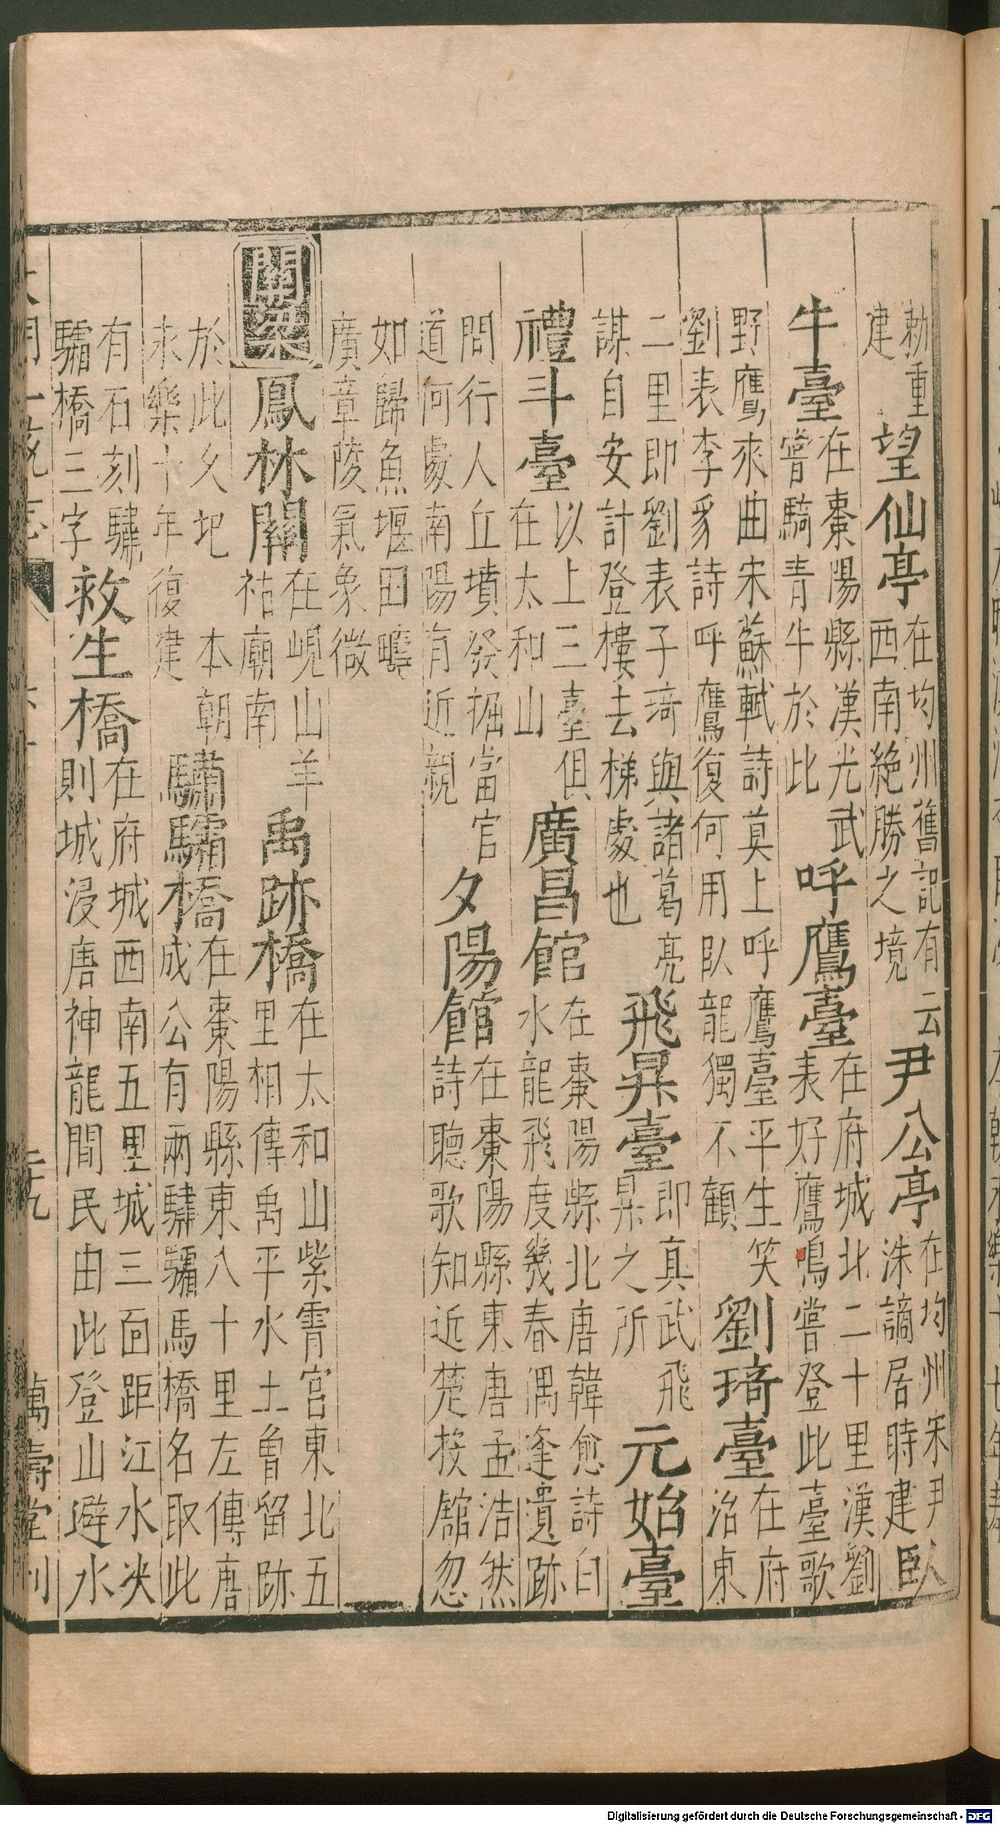 勑重建望仙亭在均州舊記有云西南絶勝之境尹公亭在均州宋尹洙謫居時建臥
牛臺在棗陽縣漢光武嘗騎青牛於此呼鷹臺在府城北二十里漢劉表好鷹鳴嘗登此臺歌
野鷹來曲宋蘇軾詩莫上呼鷹臺平生笑劉表李豸詩呼鷹復何用臥龍獨不顧劉琦臺在府治東
二里即劉表子琦與諸葛亮謀自安計登樓去梯處也飛昇臺即真武飛昇之所元始臺
禮斗臺以上三臺俱在太和山廣昌館在棗陽縣北唐韓愈詩白水龍飛度幾春偶逢遺跡
問行人丘墳發掘當官道何處南陽有近親夕陽館在棗陽縣東唐孟浩然詩聽歌知近楚投館忽
如歸魚堰田疇廣章陵氣象微
關梁鳳林關在峴山羊祜廟南禹跡橋在太和山紫霄宮東北五里相傳禹平水土曾留跡
於此久圮本朝永樂十年復建驌驦橋在棗陽縣東八十里左傳唐成公有兩驌驦馬橋名取此
有石刻驌驦橋三字救生橋在府城西南五里城三面距江水決則城浸唐神龍間民由此登山避水
大明一統志 萬壽堂刊
Digitalisierung gefördert durch die Deutsche Forschungsgemeinschaft - DFG